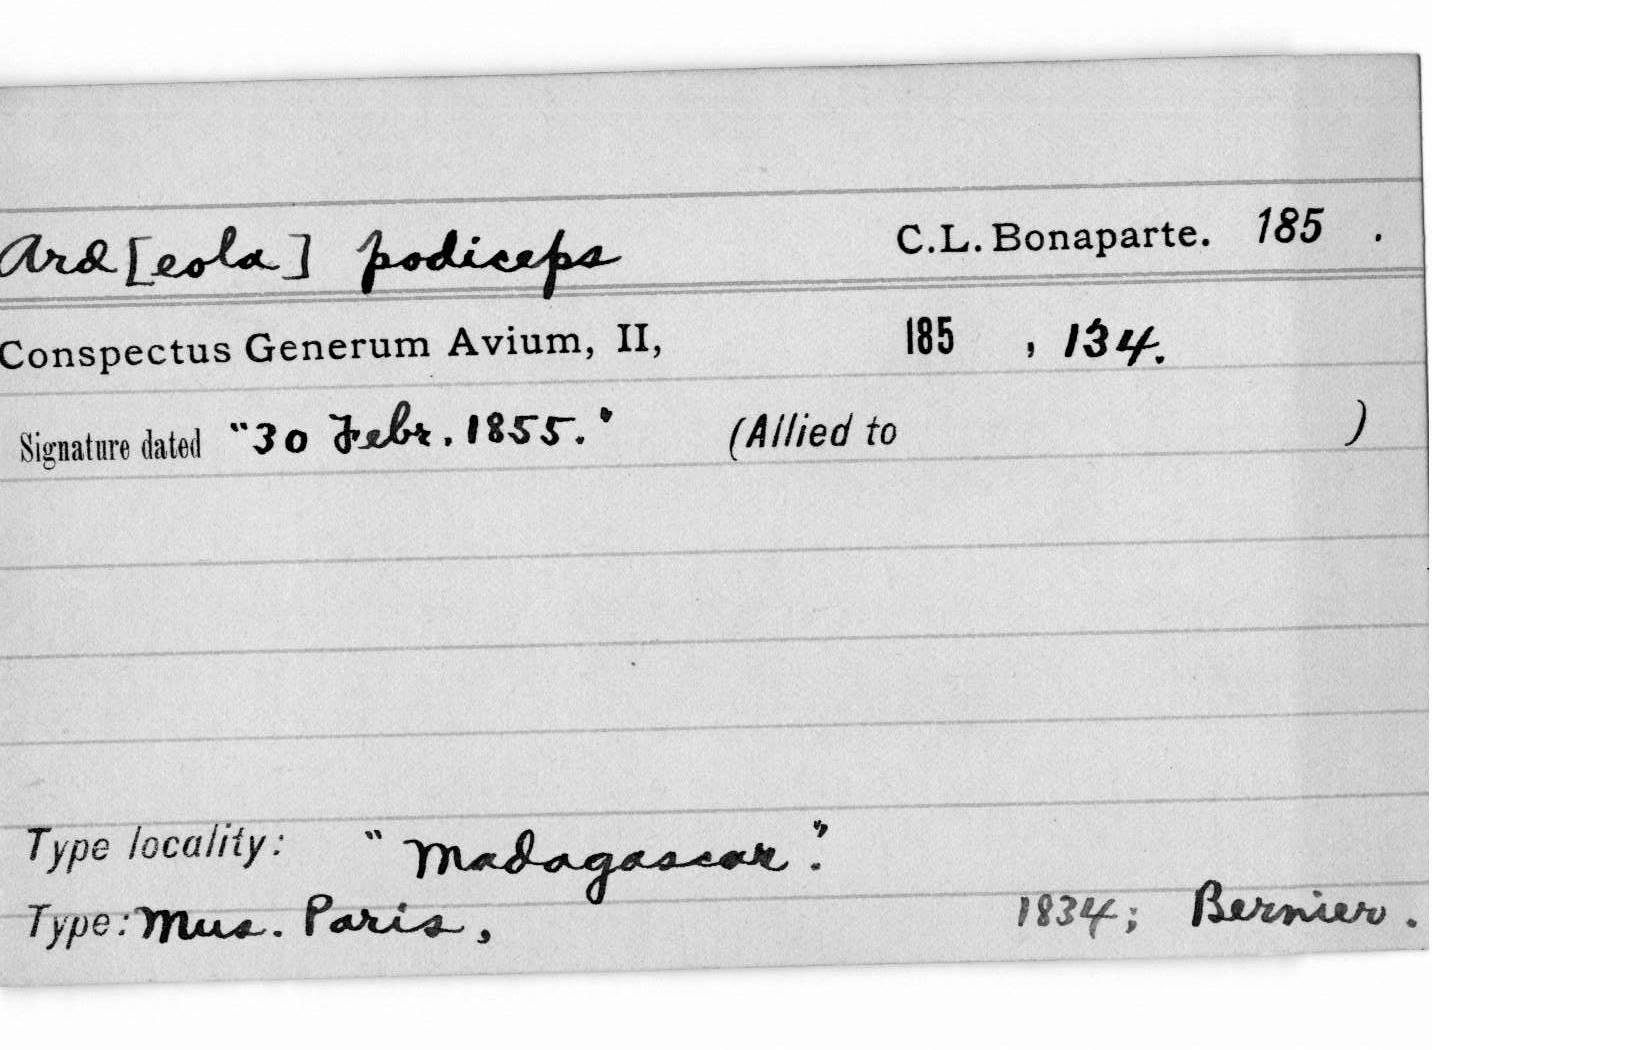 Ard[eola] podiceps C.L. Bonaparte. 185 .
Conspectus Generum Avium, II, 185 , 134.
Signature dated "30 Febr. 1855." (Allied to )
Type locality: "Madagascar".
Type: Mus. Paris, 1834; Bernier.